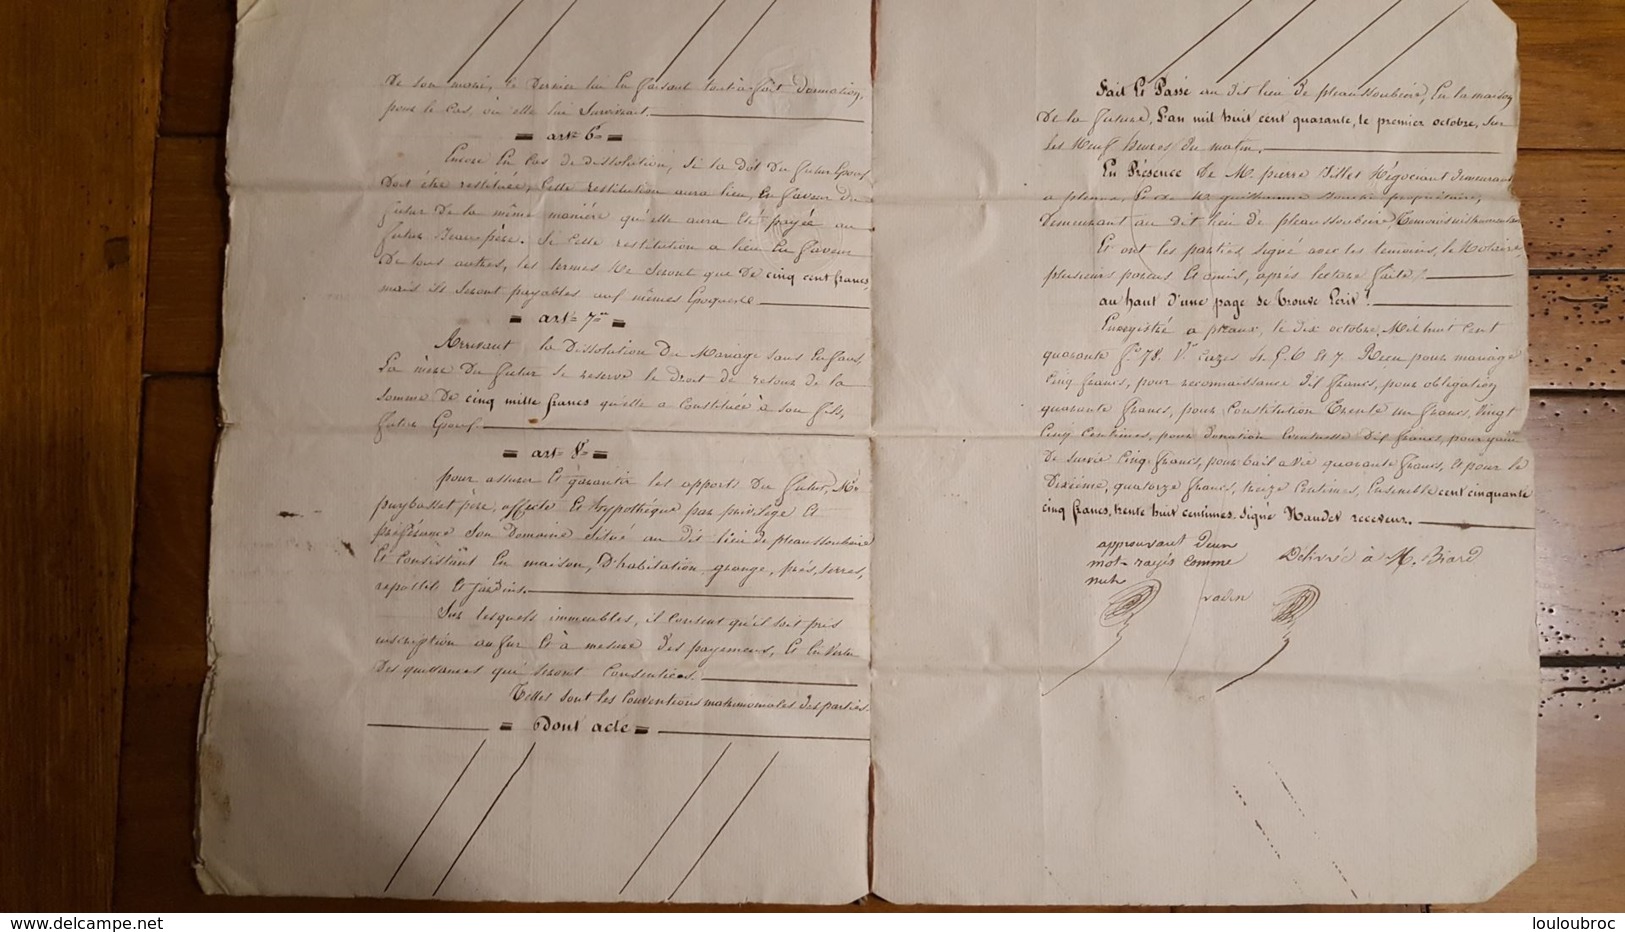 De son mari, ce dernier lui en faisant tout à fait donnation,
pour le cas, où elle lui survivrait.
art. 6.
Encore en cas de dissolution, si la dot du futur Epoux
doit être restituée, cette restitution aura lieu, en faveur du
futur de la même manière qu'elle aura été payée au
futur Beau-père. Si cette restitution a lieu en faveur
De tous autres, les termes ne seront que de cinq cent francs,
mais ils seront payables aux mêmes Epoques.
art. 7.
Arrivant la Dissolution du Mariage sans Enfans,
La mère du futur se reserve le droit de retour de la
somme de cinq mille francs qu'elle a constituée à son fils,
futur Epoux.
art. 8.
pour assurer et garantir les apports du futur, Mr
puybasset père, affecte et hypothéque par privilège et
préférence son domaine situé au dit lieu de pleaussoubeire
et consistant en maison, D'habitation grange, prés, terres,
et jardins.
Sur lesquels immeubles, il consent qu'il soit pris
inscription au fur et à mesure des payemens, et en vertu
des quittances qui seront consenties.
Telles sont les Conventions matrimoniales des parties.
Dont acte
Fait Et Passé au dit lieu de pleaussoubeire, En la maison
De la future, L'an mil huit cent quarante, le premier octobre, sur
les Neuf heures du matin.
En Présence De M. pierre Tillet Négociant demeurant
a pleaux, Et de M. guillaume propriétaire,
demeurant au dit lieu de pleaussoubeire,
Et ont les parties, signé avec les temoins, le Notaire,
plusieurs parens Et amis, après lecture faite.
au haut d'une page se trouve Ecrit:
Enregistré a pleaux, le dix octobre, Mil huit cent
quarante f° 78. V° cazes 4. 5. 6 et 7. Reçu pour mariage
cinq francs, pour reconnaissance dix francs, pour obligation
quarante francs, pour constitution trente un francs, vingt
cinq centimes, pour donation eventuelle dix francs, pour gain
de survie cinq francs, pour bail a vie quarante francs, et pour le
Dixième, quatorze francs, treize centimes, Ensemble cent cinquante
cinq francs, trente huit centimes. Signé Naudet receveur.
approuvant deux
mots rayés comme
nuls
Délivré à M. Biard
delcampe.net
louloubroc